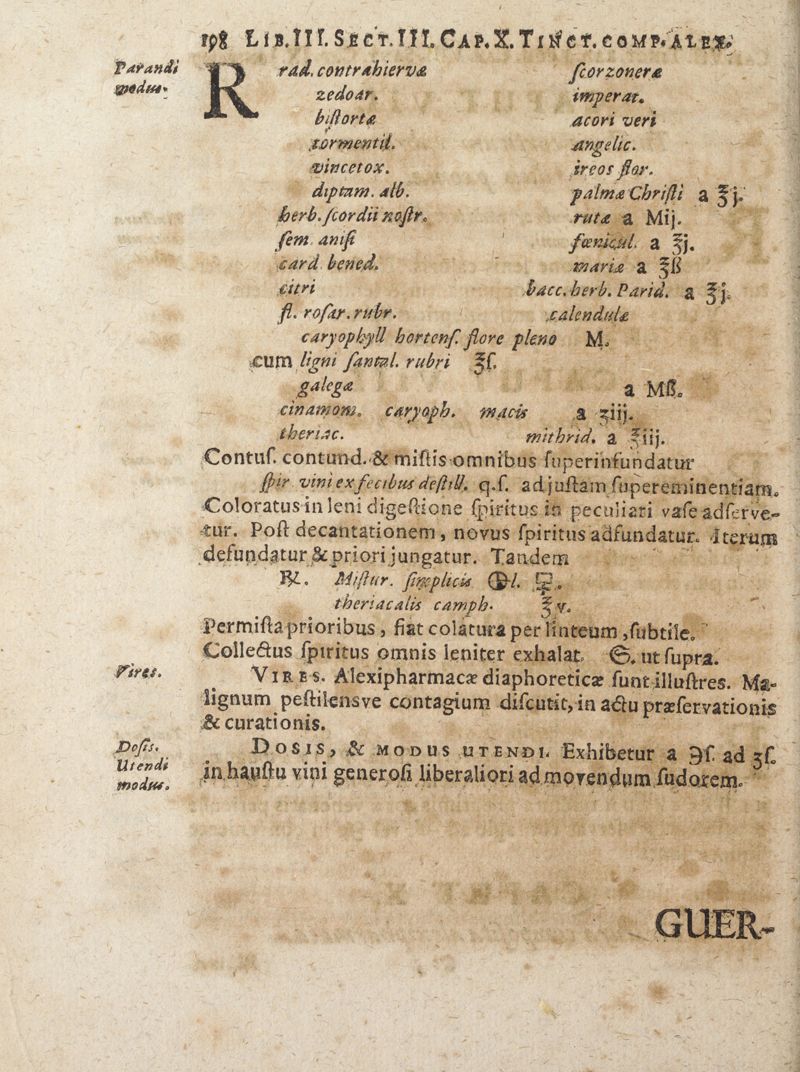 198 LIB.III. SECT.III. CAP.X. TINCT. COMP. ALEX.
Parandi modus.
R rad. contrahiervæ ſcorzoneræ
zedoar. imperat.
biſtortæ acori veri
tormentil. angelic.
vincetox. ireos flor.
diptam. alb. palmæ Chriſti a ℥j.
herb. ſcordii noſtr. rutæ a Mij.
ſem. aniſi fœnicul. a ℥j.
card. bened. mariæ a ℥ß
citri bacc. herb. Parid. a ℥j.
fl. roſar. rubr. calendulæ
caryophyll hortenſ. flore pleno M.
cum ligni ſantal. rubri ℥ſ.
galegæ a Mß.
cinamom. caryoph. macis a ʒiij.
theriac. mithrid. a ℥iij.
Contuſ. contund. & miſtis omnibus ſuperinfundatur
ſpir vini ex fecibus deſtill. q.ſ. ad juſtam ſupereminentiam.
Coloratus in leni digeſtione ſpiritus in peculiari vaſe adſerve-
tur. Poſt decantationem, novus ſpiritus adfundatur. Iterum
defundatur & priori jungatur. Tandem
℞. Miſtur. ſimplicis l.
theriacalis camph. ℥v.
Permiſta prioribus, fiat colatura per linteum, ſubtile.
Collectus ſpiritus omnis leniter exhalat. ut ſupra.
Vires.
VIRES. Alexipharmacæ diaphoreticæ ſunt illuſtres. Ma-
lignum peſtilensve contagium diſcutit, in actu præſervationis
& curationis.
Doſis.
Utendi
modus.
DOSIS, & MODUS UTENDI. Exhibetur a ℈ſ. ad ʒſ.
in hauſtu vini generoſi liberaliori ad movendum ſudorem.
GUER-